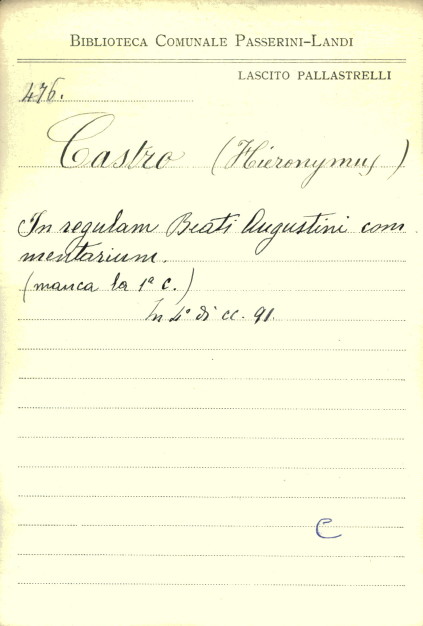 BIBLIOTECA COMUNALE PASSERINI-LANDI
LASCITO PALLASTRELLI
476.
Castro (Hieronymus)
In regulam Beati Augustini com
mentarium.
(manca la 1ª c.)
In 4° di cc. 91.
C